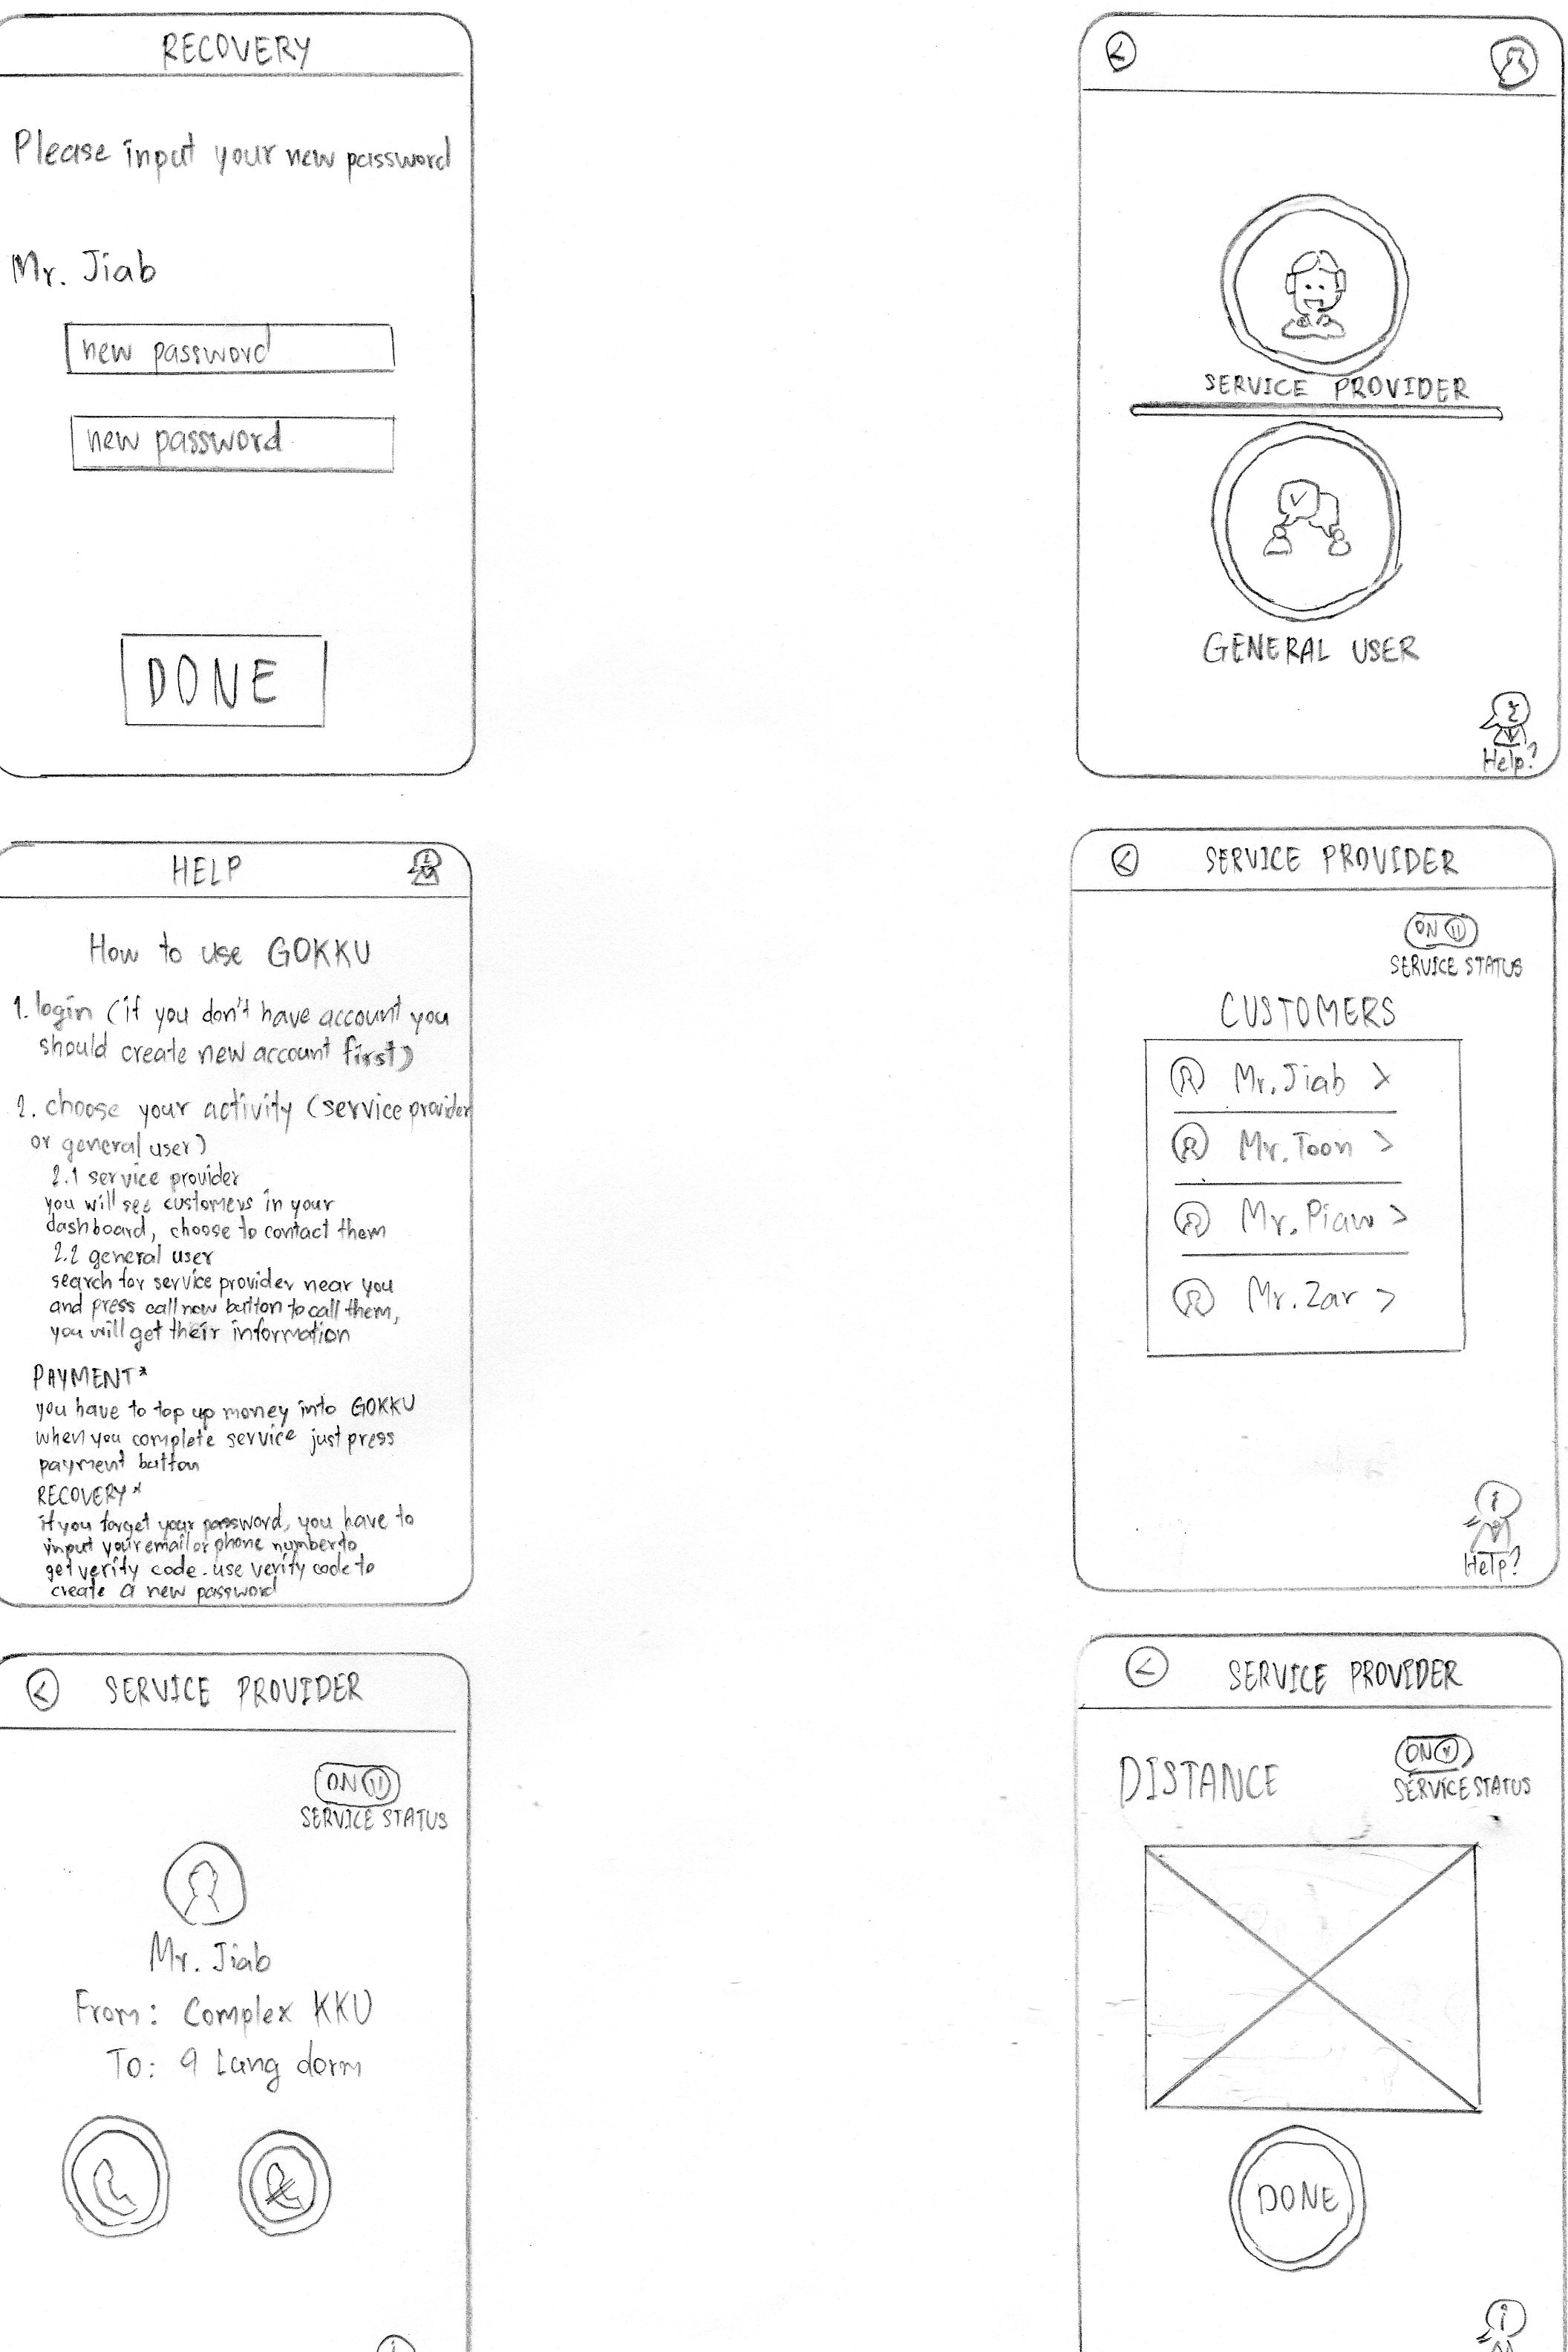 RECOVERY
Please input your new password
Mr. Jiab
new password
new password
DONE
SERVICE PROVIDER
GENERAL USER
Help?
HELP
How to use GOKKU
1. login (if you don't have account you
should create new account first)
2. choose your activity (service provider
or general user)
2.1 service provider
you will see customers in your
dashboard, choose to contact them
2.2 general user
search for service provider near you
and press call now button to call them,
you will get their information
PAYMENT*
you have to top up money into GOKKU
when you complete service just press
payment button
RECOVERY*
if you forget your password, you have to
input your email or phone number to
get verify code. use verify code to
create a new password
SERVICE PROVIDER
ON
SERVICE STATUS
CUSTOMERS
Mr. Jiab >
Mr. Toon >
Mr. Piaw >
Mr. Zar >
Help?
SERVICE PROVIDER
ON
SERVICE STATUS
Mr. Jiab
From: Complex KKU
To: 9 Lang dorm
SERVICE PROVIDER
DISTANCE
ON
SERVICE STATUS
DONE